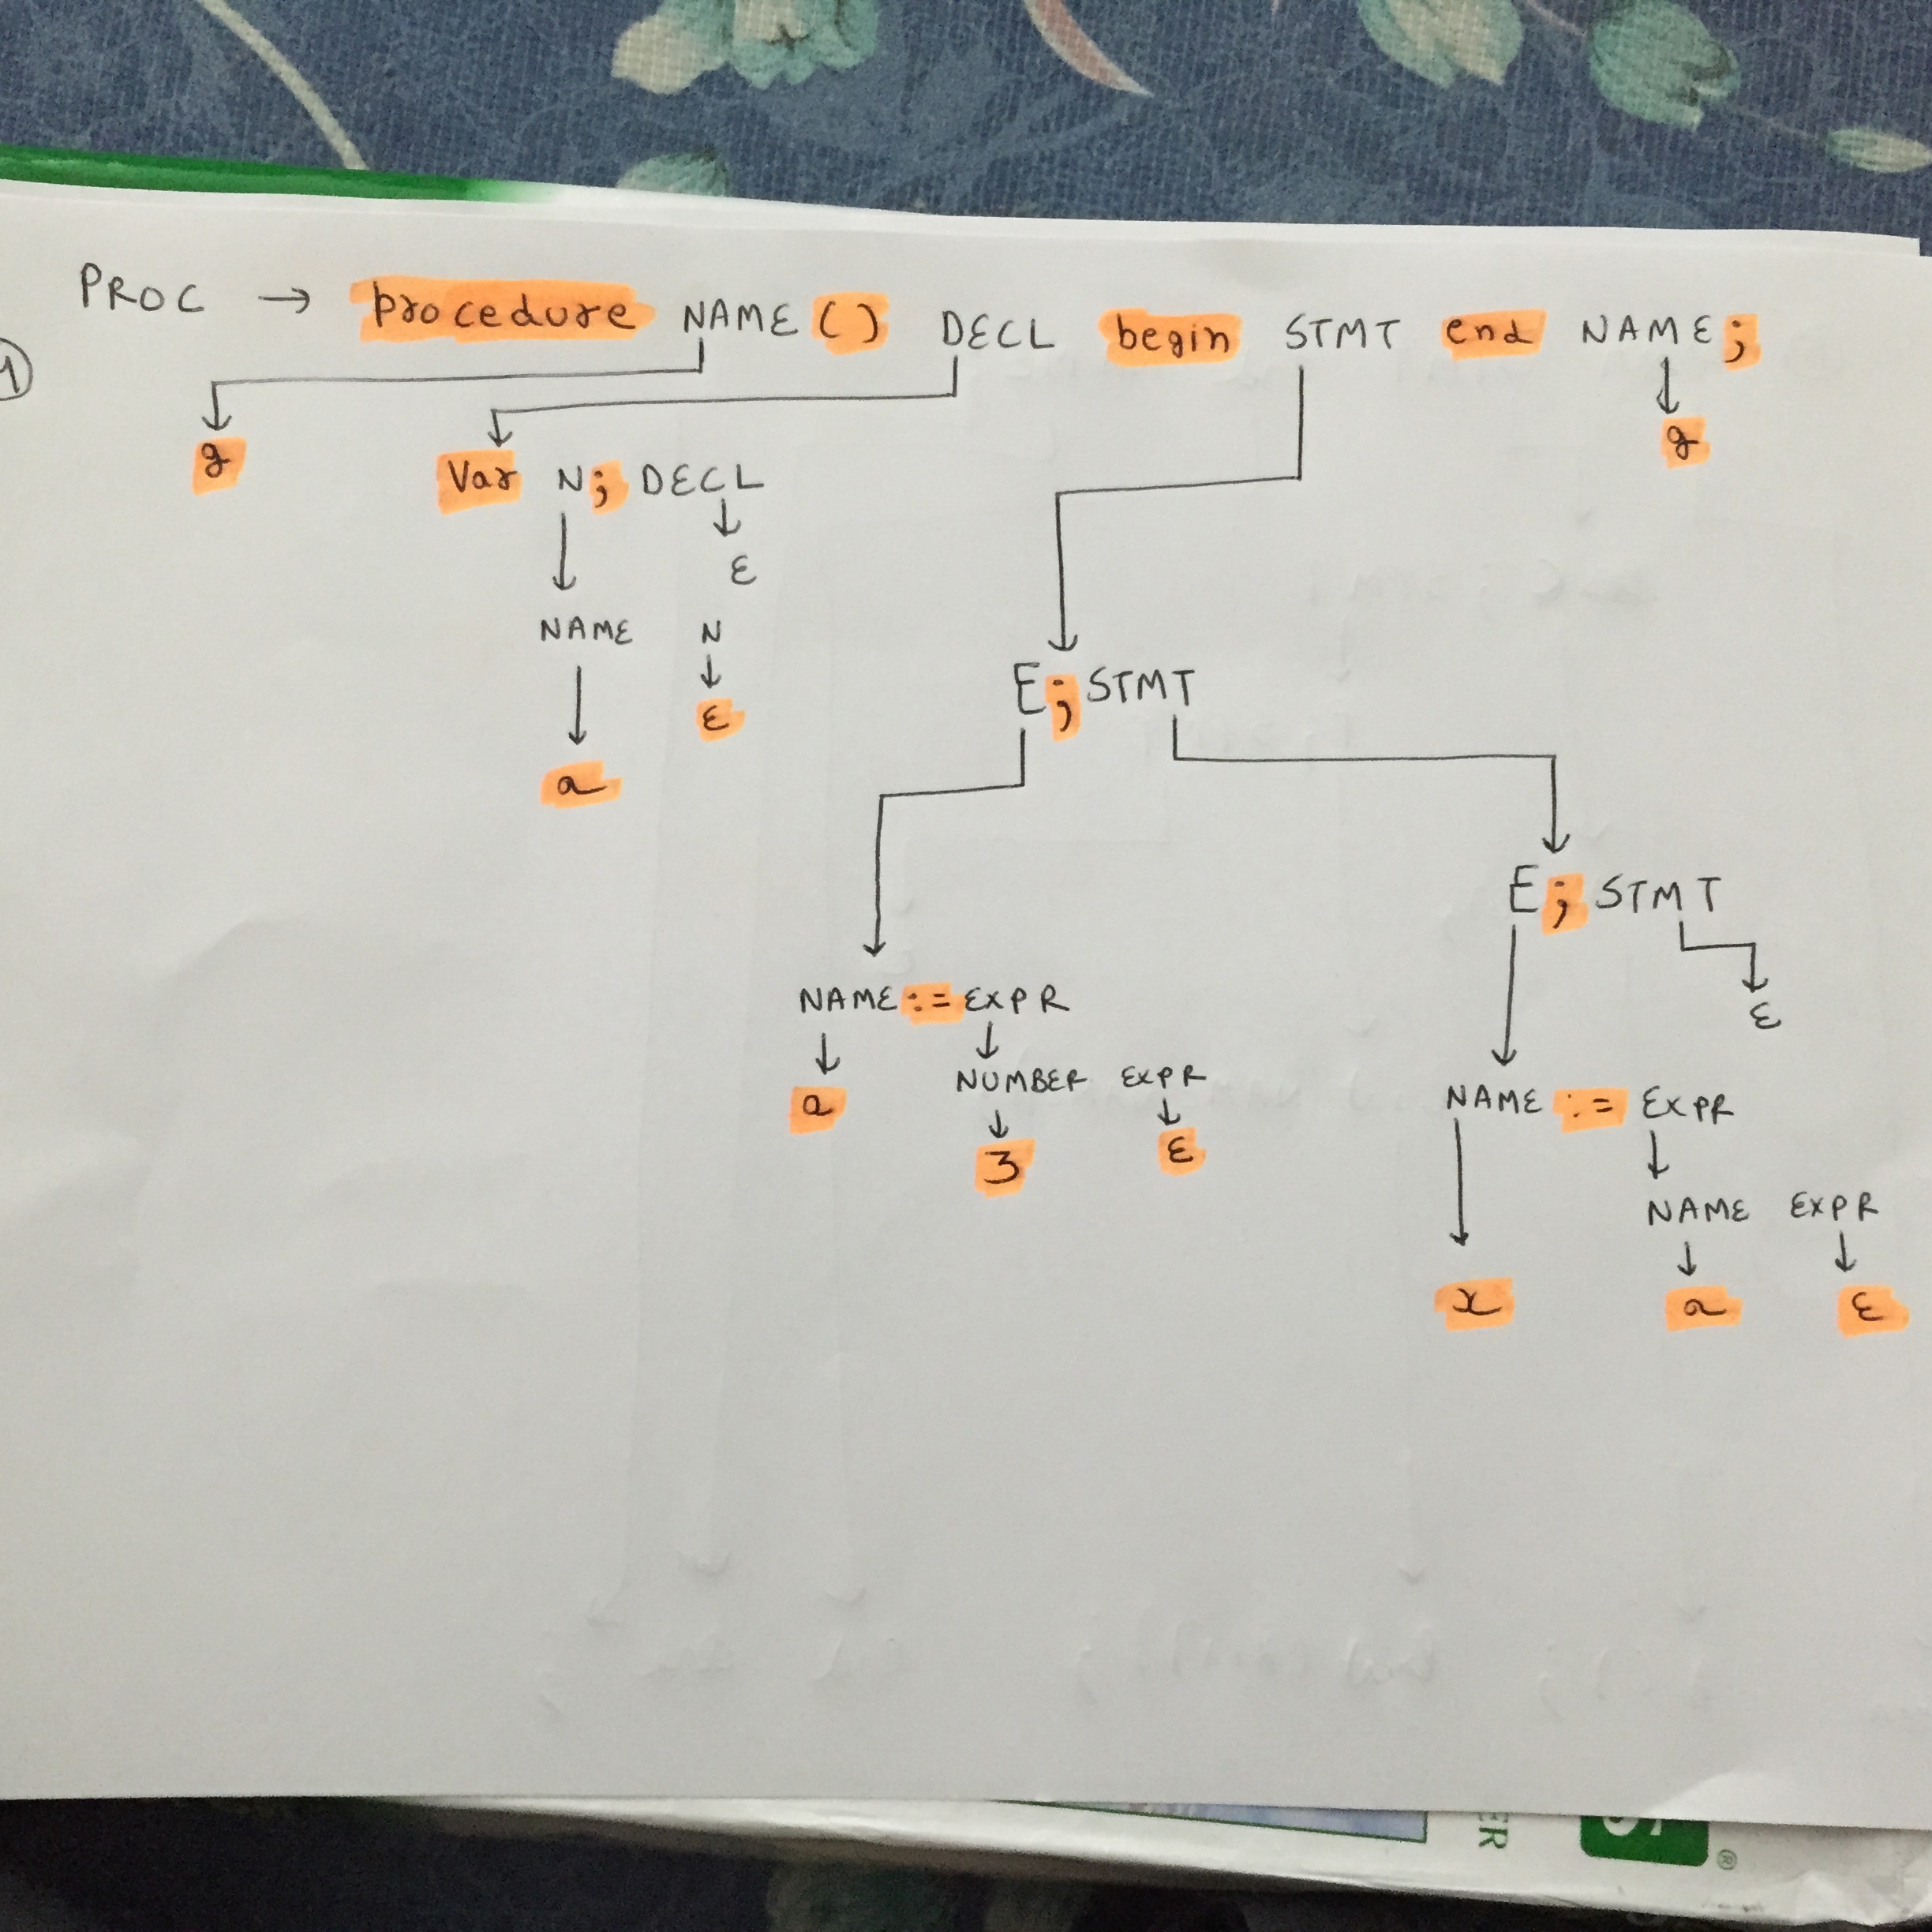 PROC → procedure NAME () DECL begin STMT end NAME ;
1
g
g
Var N ; DECL
ε
NAME N
ε
E ; STMT
a
E ; STMT
NAME := EXPR
ε
NUMBER EXPR
a
NAME := EXPR
3 ε
NAME EXPR
x a ε
ER
®